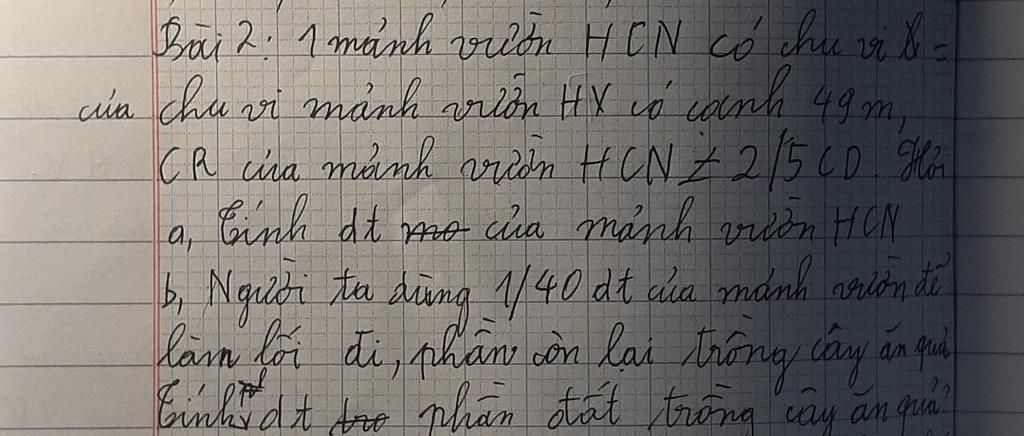 Bài 2: 1 mảnh vườn HCN có chu vi =
của chu vi mảnh vườn HV có cạnh 49 m,
CR của mảnh vườn HCN = 2/5 CD. Hỏi
a, Tính dt của mảnh vườn HCN
b, Người ta dùng 1/40 dt của mảnh vườn để
làm lối đi, phần còn lại trồng cây ăn quả
Tính dt phần đất trồng cây ăn quả?